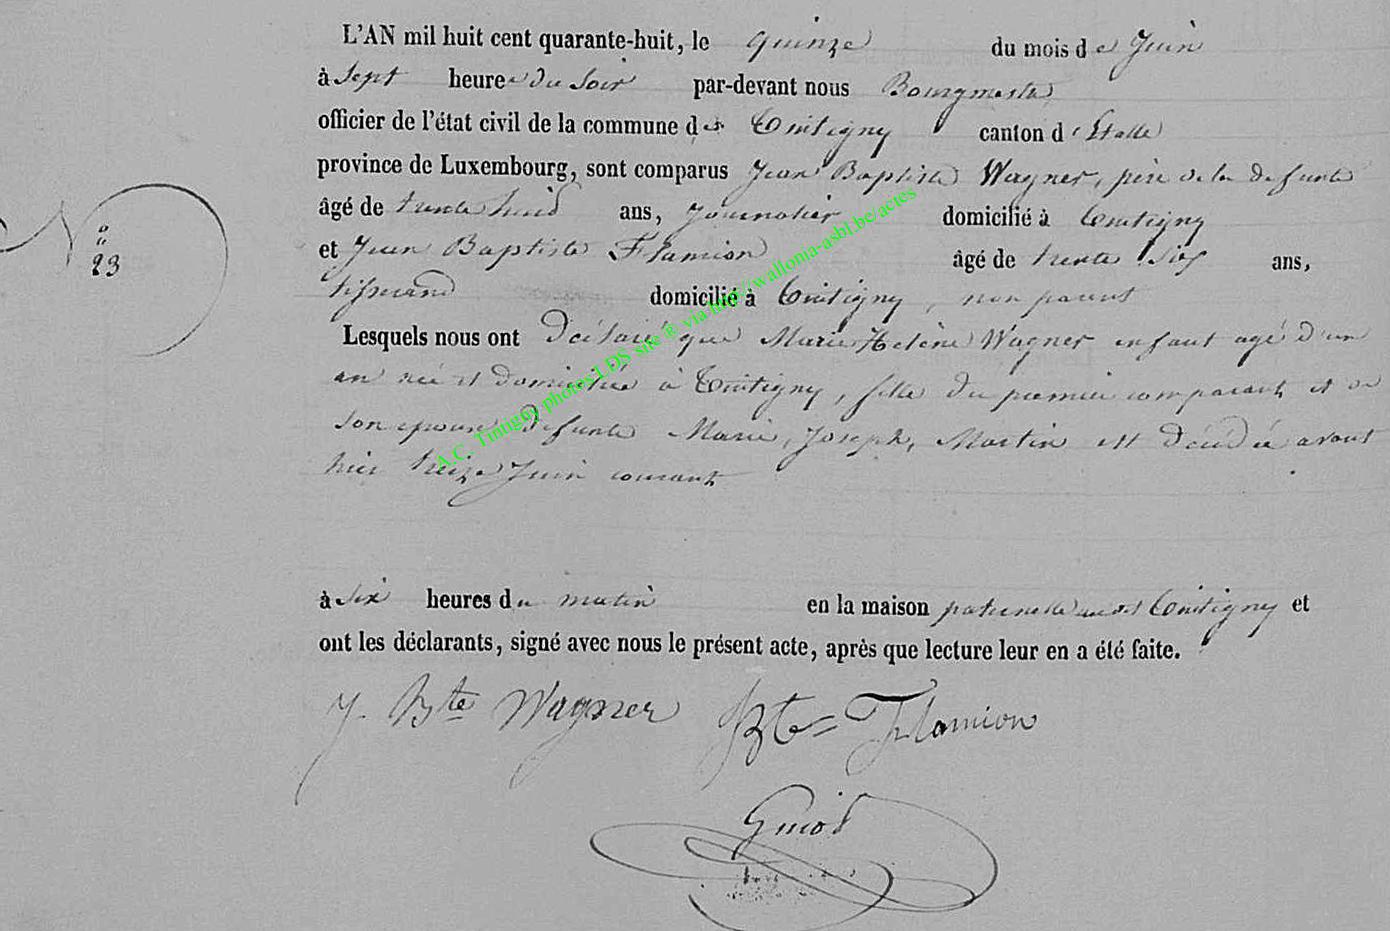 L'AN mil huit cent quarante-huit, le quinze du mois de Juin
à Sept heures du Soir par-devant nous Bourgmestre
officier de l'état civil de la commune de Tintigny canton d'Etalle
province de Luxembourg, sont comparus Jean Baptiste Wagner, père de la defunte
âgé de trente huit ans, Journalier domicilié à Tintigny
N° 23
et Jean Baptiste Flamion âgé de trente Six ans,
tisserand domicilié à Tintigny, non parent
Lesquels nous ont Déclaré que Marie Helène Wagner enfant agé d'un
an née et domiciliée à Tintigny, fille du premier comparant et de
son epouse defunte Marie, Joseph, Martin est décédée avant
hier treize Juin courant
à six heures du matin en la maison paternelle audit Tintigny et
ont les déclarants, signé avec nous le présent acte, après que lecture leur en a été faite.
J. Bte Wagner JBte Flamion
Guiot
A.C. Tintigny photos LDS site ® via http://wallonia-asbl.be/actes